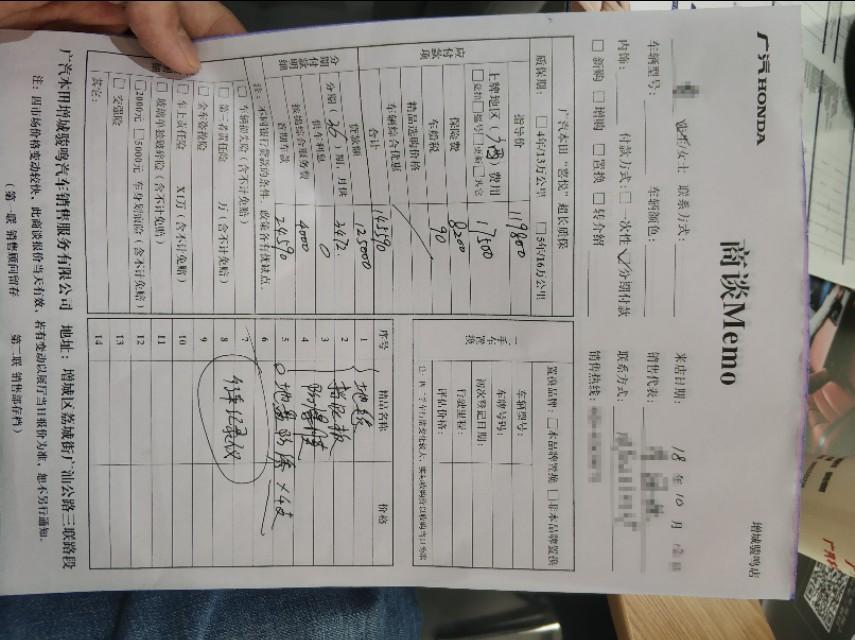 广汽HONDA
商谈Memo
增城骏鸣店
先生/女士 联系方式:
来店日期: 18 年 10 月
车辆型号: 车辆颜色:
销售代表:
内饰: 付款方式: □一次性 ☑分期付款
联系方式:
□新购 □增购 □置换 □转介绍
销售热线:
广汽本田“喜悦”超长质保
质保期: □4年/13万公里 □5年/16万公里
应付款项
指导价 119800
上牌地区( )费用 17500
保险费 8200
车船税 90
精品选购价格
车辆综合优惠
合计 145590
分期付款明细
贷款额 125000
分期(36)期,月供 3472
供车利息 0
按揭综合服务费 4000
首期车款 24590
注:不同银行贷款的条件、政策各有优缺点.
□车辆损失险(含不计免赔)
□第三者责任险 万(含不计免赔)
□全车盗抢险 (含不计免赔)
□车上责任险 X1万(含不计免赔)
□玻璃单独破碎险(含不计免赔)
□2000元 □5000元 车身划痕险(含不计免赔)
□交强险
其它:
二手车置换
置换品牌: □本品牌置换 □非本品牌置换
车辆型号:
车牌号码:
初次登记日期:
行驶里程:
评估价格:
序号 精品名称 价格
1 地毯
2 挡泥板
3 防爆膜
4
5 地盘防锈×4支
6
7
8 行车记录仪
9
10
11
12
13
14
广汽本田增城骏鸣汽车销售服务有限公司 地址:增城区荔城街广汕公路三联路段
注:因市场价格变动较快,此商谈报价当天有效,若有变动以展厅当日报价为准,恕不另行通知。
(第一联 销售顾问留存 第二联 销售部存档)